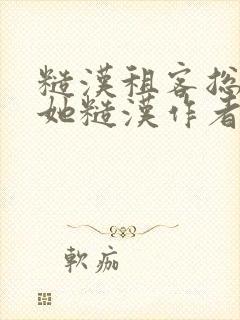 糙漢租客總
她糙漢作者
軟痂